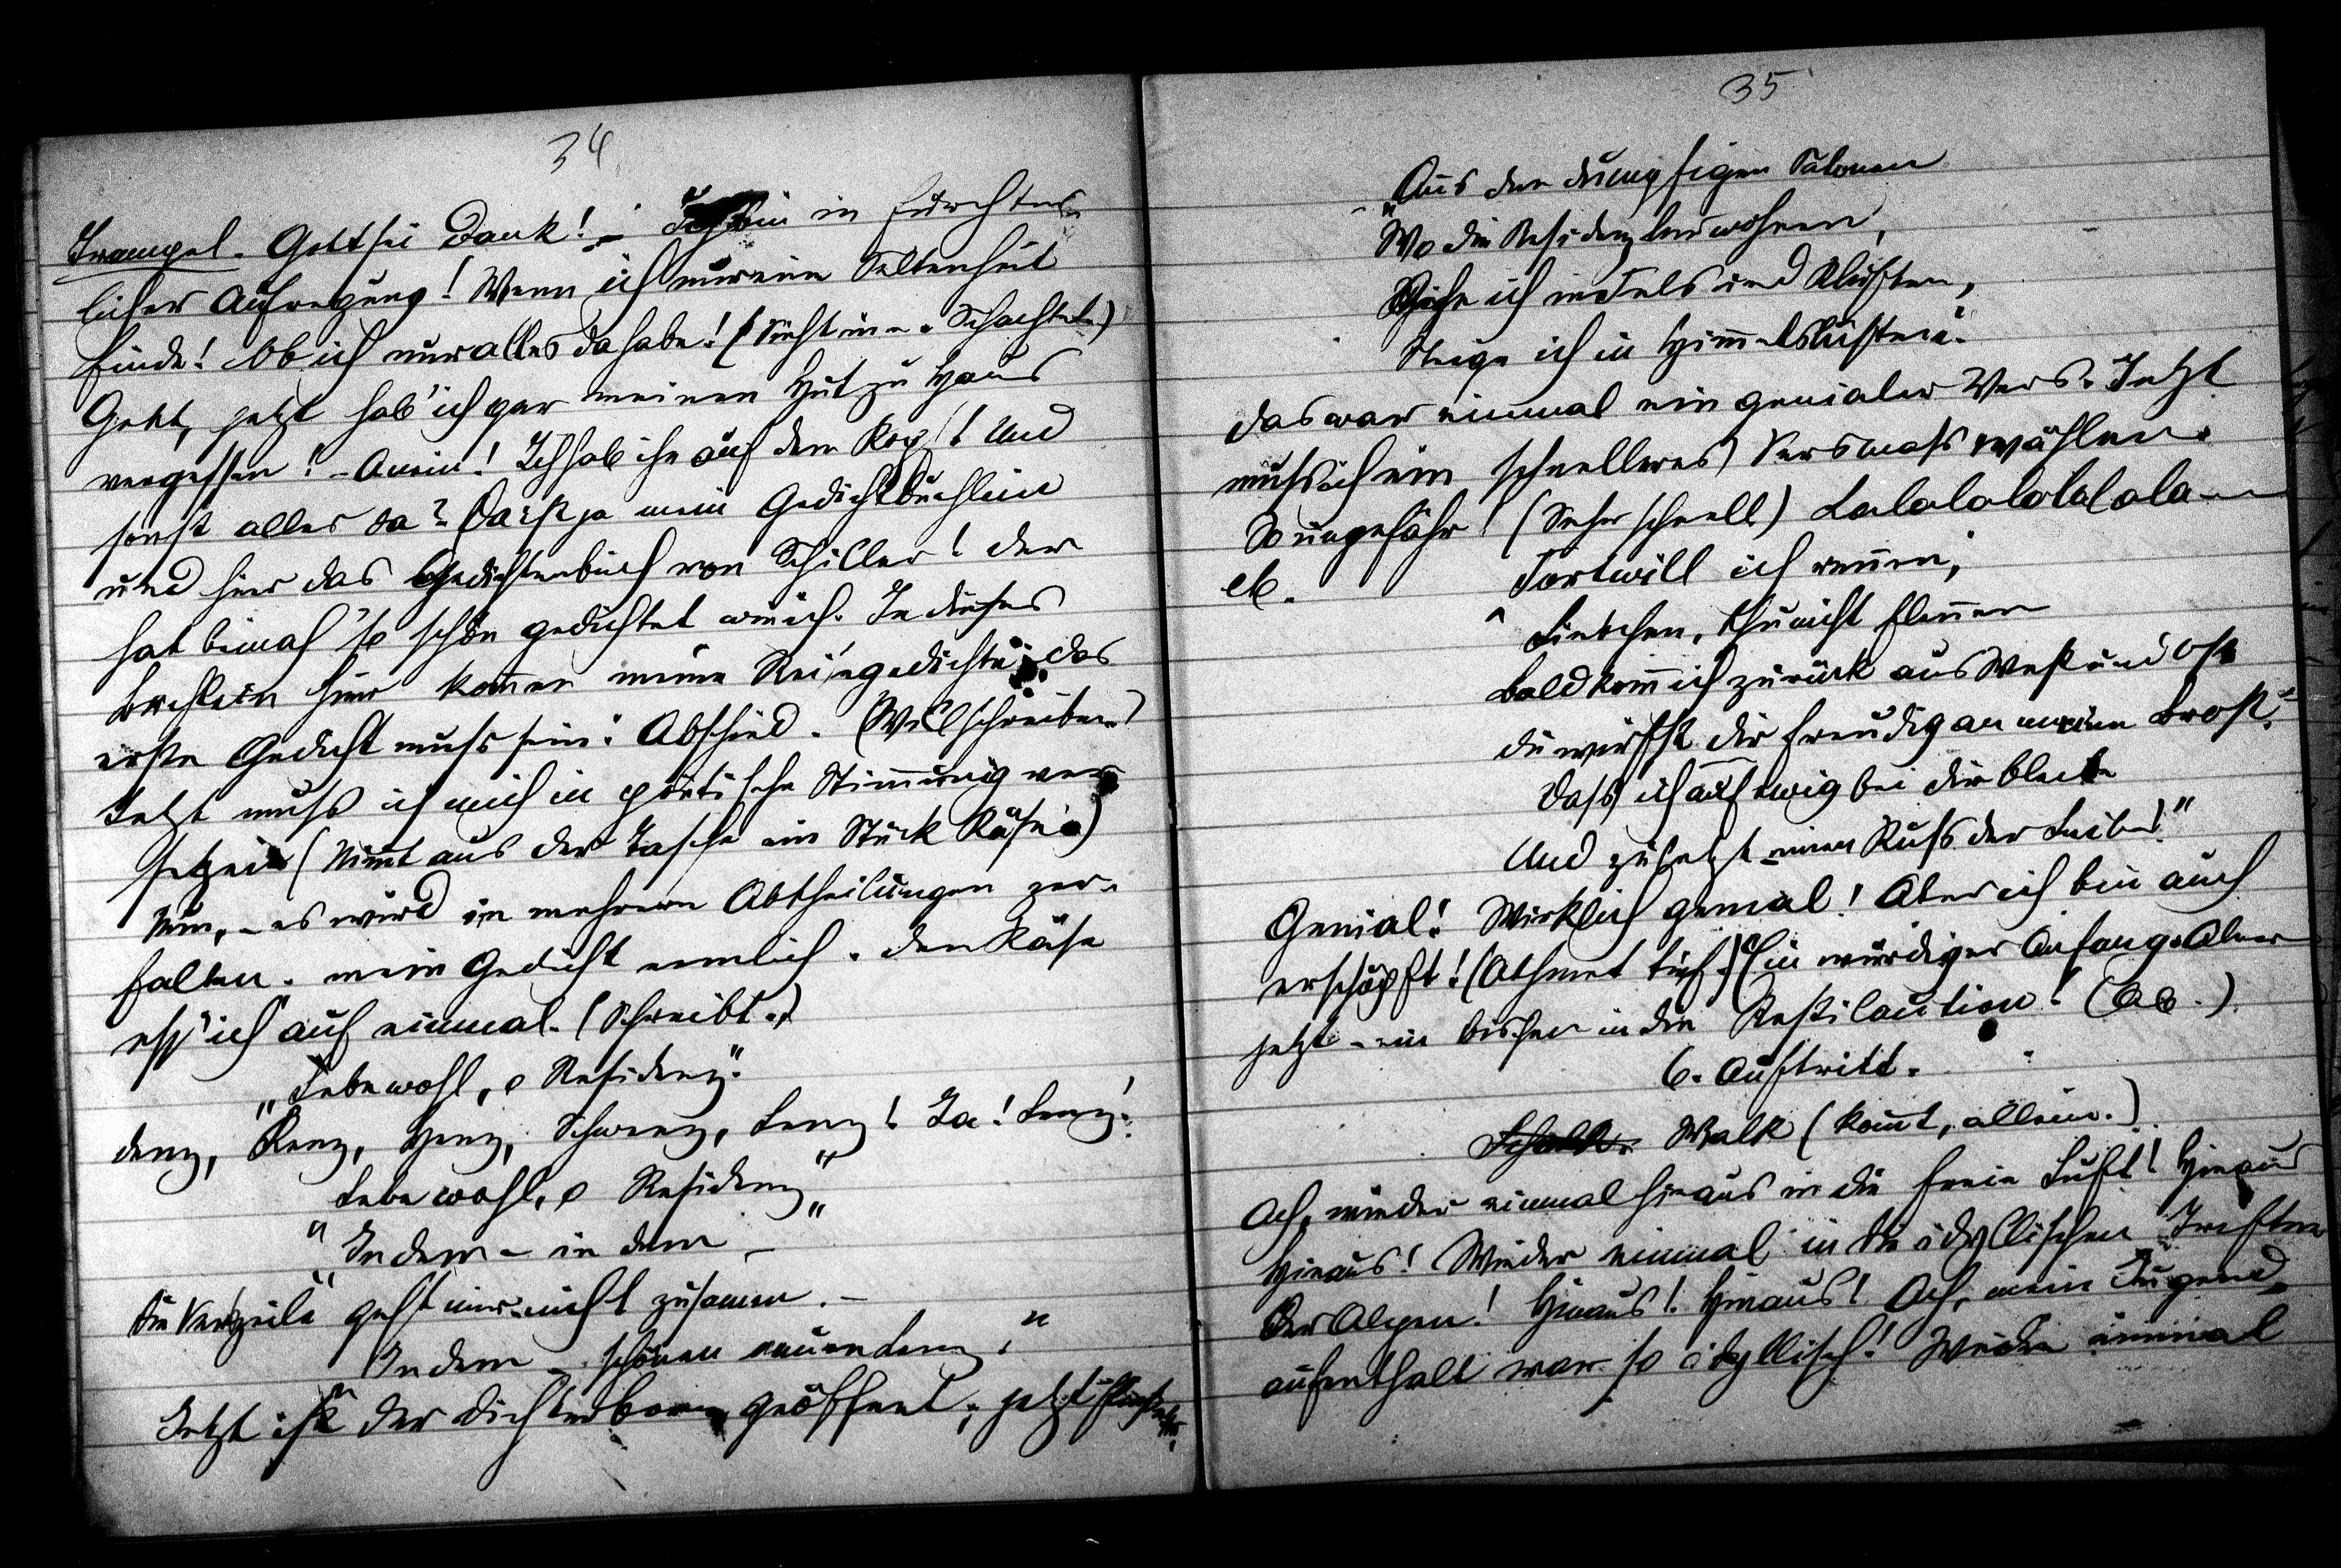 34
Trampel. Gott sei Dank! – Ich bin in fürchter-
licher Aufregung! Wenn ich nur eine Seltenheit
finde! Ob ich nur alles da habe! (Sieht in e. Schachtel.)
Geht, jetzt hab' ich gar meinen Hut zu Haus
vergessen! – O nein! Ich hab ihn auf dem Kopf! Und
sonst alles da? Da ist ja mein Gedichtbüchlein
und hier das Gedichtenbuch von Schiller! Der
hat beinah so schön gedichtet wie ich. In dieses
Büchlein hier kommen meine Reisegedichte; das
erste Gedicht muss sein: Abschied. (Will schreiben.)
Jetzt muss ich mich in poetische Stimmung ver-
setzen (Nimmt aus der Tasche ein Stück Käse.)
Nun, – es wird in mehrere Abtheilungen zer-
fallen. mein Gedicht nemlich. Den Käse
ess' ich auf einmal. (Schreibt.)
„Lebe wohl, o Residenz."
denz, Renz, Henz, Schwenz, Lenz! Ja! Lenz!
Lebe wohl, o Residenz"
„In dem – in dem –
Die Verszeile geht mir nicht zusamen. –
In dem – schönen neuen Lenz."
Jetzt ist der Dichterborn geöffnet; jetzt
35
„Aus den dumpfigen Salonen
Wo die Residenzler wohnen,
Ziehe ich in Fels und Klüften,
Steige ich in Himelslüften".
Das war einmal ein genialer Vers. Jetzt
muss ich ein schnelleres Versmass wählen.
So ungefähr! (Sehr schnell) Lalalalalalala
etc.
Fort will ich rennen,
Liebchen, thu nicht flennen
Bald kom ich zurück aus West und Ost
Du wirfst dir freudig an meine Brost.
Dass ich auf ewig bei dir bleibe
Und zuletzt einen Kuss der Leibe!"
Genial! Wirklich genial! Aber ich bin auch
erschöpft! (Athmet tief.) Ein würdiger Anfang. Aber
jetzt – ein bischen in die Restilaution! (Ab.)
6. Auftritt.
Schalk. Walk (komt, allein.)
Ach, wieder einmal hinaus in die freie Luft! Hinaus
Hinaus! Wieder einmal in die idyllischen Triften
Der Alpen! Hinaus! Hinaus! Ach, mein Jugend-
aufenthalt war so idyllisch! Wieder einmal